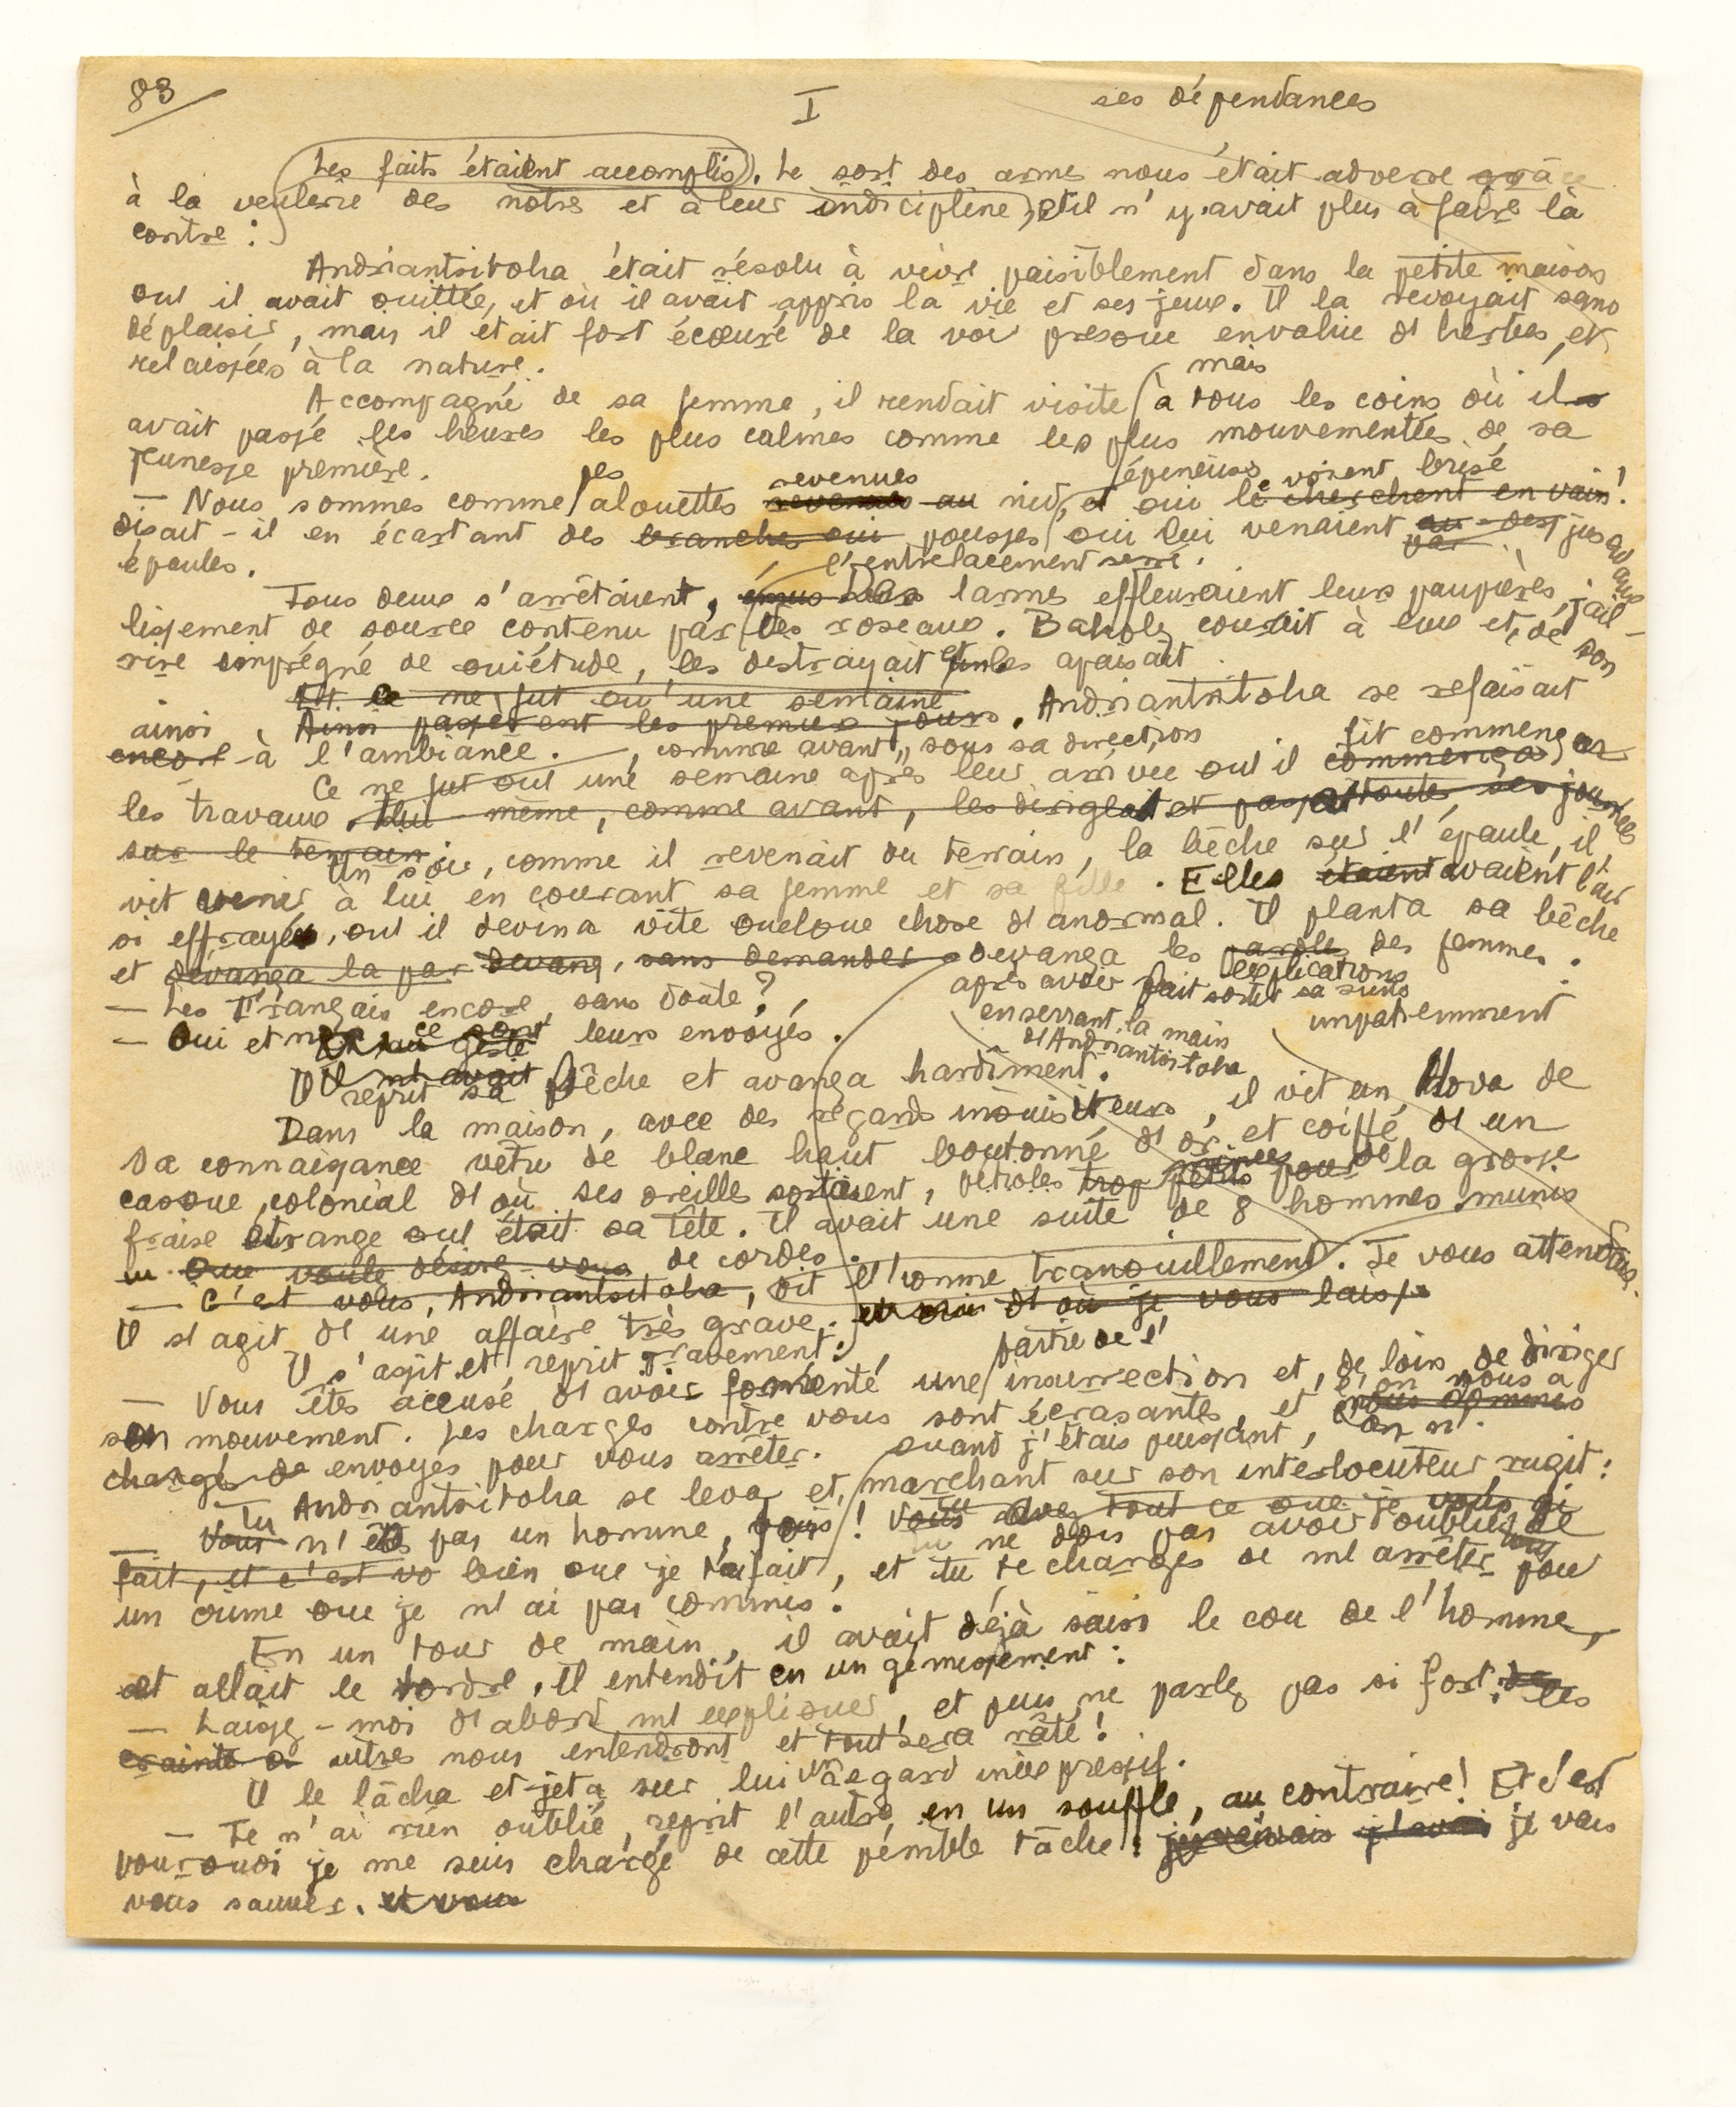 83
I
ses dépendances
Les faits étaient accomplis. Le sort des armes nous était adverse grâce
à la veulerie des notres et à leur indicipline, et il n'y avait plus à faire là
contre :
Andriantsitoha était résolu à vivre paisiblement dans la petite maison
qu'il avait quittée, et où il avait appris la vie et ses jeux. Il la revoyait sans
déplaisir, mais il était fort écœuré de la voir presque envahie d'herbes, et
relaissées à la nature.
mais
Accompagné de sa femme, il rendait visite à tous les coins où il
avait passé ses heures les plus calmes comme les plus mouvementées de sa
jeunesse première.
des revenues épineuses voient brisé
— Nous sommes comme alouettes revenues au nid, et qui le cherchent en vain !
disait-il en écartant des branches qui pousses qui lui venaient au-des jusqu'aux
par
épaules.
l'entrelacement serré.
Tous deux s'arrêtaient, émus Des larmes effleuraient leurs paupières, jail-
lissement de source contenu par les roseaux. Baholy courait à eux et, de son
rire imprégné de quiétude, les distrayait et les apaisait
Et ce ne fut qu'une semaine
ainsi Ainsi passèrent les premiers jours. Andriantsitoha se refaisait
encore à l'ambiance. , comme avant, sous sa direction fit commencer
Ce ne fut qu'une semaine après leur arrivée qu'il commença
les travaux. Lui-même, comme avant, les dirigeait et passait toutes ses journées
sur le terrain.
Un soir, comme il revenait du terrain, la bêche sur l'épaule, il
vit venir à lui en courant sa femme et sa fille. Elles étaient avaient l'air
si effrayées, qu'il devina vite quelque chose d'anormal. Il planta sa bêche
et devança la par devanç, sans demander devança les paroles des femmes.
explications
— Les Français encore, sans doute ?
après avoir fait sortir sa suite
impatiemment
— Oui et non ce sont leurs envoyés.
en serrant la main
d'Andriantsitoha
geste
Il m'avait
Il reprit sa bêche et avança hardiment.
Dans la maison, avec des regards inquisiteurs, il vit un Hova de
sa connaissance vêtu de blanc haut boutonné d'or et coiffé d'un
casque colonial d'où ses oreilles sortaient, pétioles trop petits pour de la grosse
fraise étrange qu'était sa tête. Il avait une suite de 8 hommes munis
Que désire-vous de cordes.
— C'est vous, Andriantsitoha, dit l'homme tranquillement. Je vous attendais.
Il s'agit d'une affaire très grave. d'où je vous laiss
Il s'assit et reprit gravement :
partie de l'
— Vous êtes accusé d'avoir fomenté une insurrection et, de loin, de diriger
son mouvement. Les charges contre vous sont écrasantes, et l'on nous a
nous sommes
chargé de envoyés pour vous arrêter.
quand j'étais puissant,
Andriantsitoha se leva et, marchant sur son interlocuteur, rugit :
Tu
— Vous n'es pas un homme, ! Vous avez tout ce que je vous ai
tu ne dois pas avoir oublié le
fait, et c'est vo bien que je t'ai fait, et tu te charges de m'arrêter pour
un crime que je n'ai pas commis.
En un tour de main, il avait déjà saisi le cou de l'homme,
et allait le tordre. Il entendit en un gémissement :
— Laisse-moi d'abord m'expliquer, et puis ne parlez pas si fort : les
crainte d autres nous entendront et tout sera râté !
Il le lâcha et jeta sur lui un regard inexpressif.
— Je n'ai rien oublié, reprit l'autre en un souffle, au contraire ! Et c'est
pourquoi je me suis chargé de cette pénible tâche : je vais
vous sauver. et vous